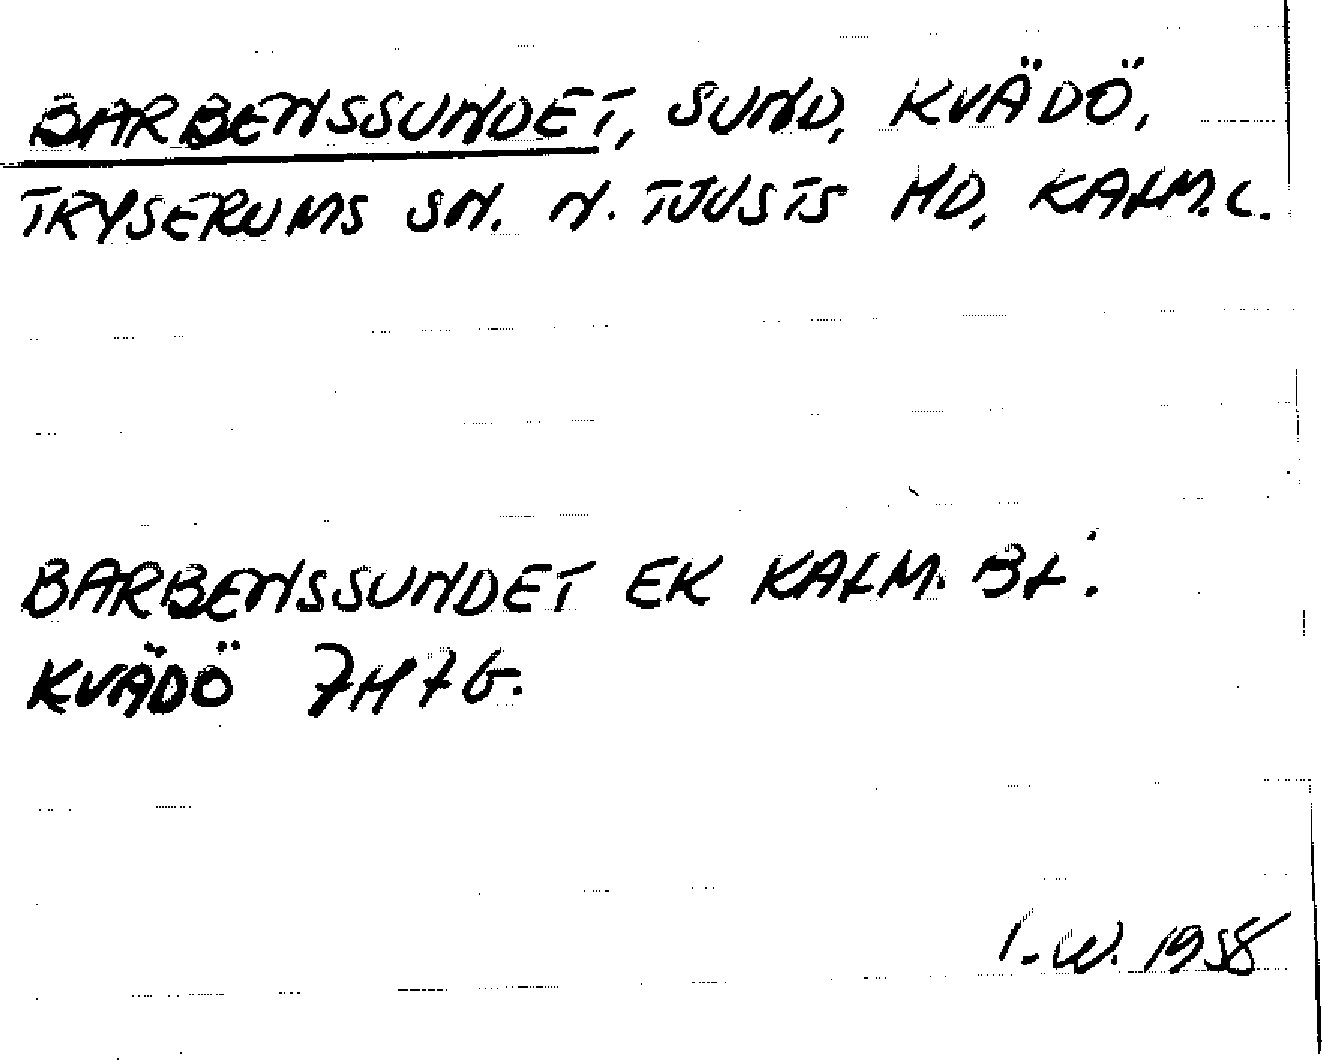 BARBENSSUNDET, SUND, KVÄDÖ,
TRYSERUMS SN. N. TJUSTS HD, KALM.L.
BARBENSSUNDET EK KALM. BL:
KVÄDÖ 7H7G.
I.W. 1958